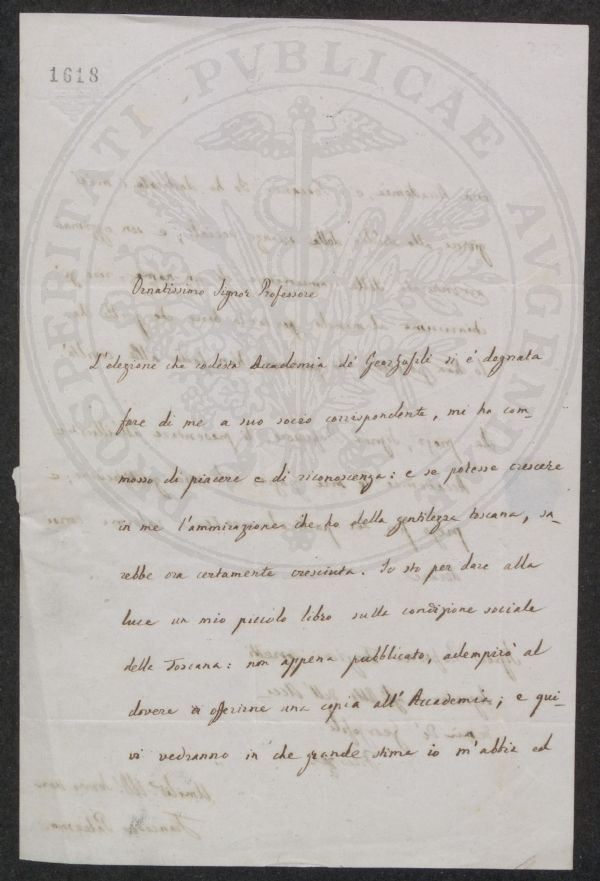 1618
PROSPERITATI PVBLICAE AVGENDAE
Ornatissimo Signor Professore
L'elezione che codesta Accademia de' Georgofili si è degnata
fare di me a suo socio corrispondente, mi ha com-
mosso di piacere e di riconoscenza: e se potesse crescere
in me l'ammirazione che ho della gentilezza toscana, sa-
rebbe ora certamente cresciuta. Io sto per dare alla
luce un mio piccolo libro sulla condizione sociale
della Toscana: non appena pubblicato, adempirò al
dovere di offerirne una copia all'Accademia; e qui-
vi vedranno in che grande stima io m'abbia ed